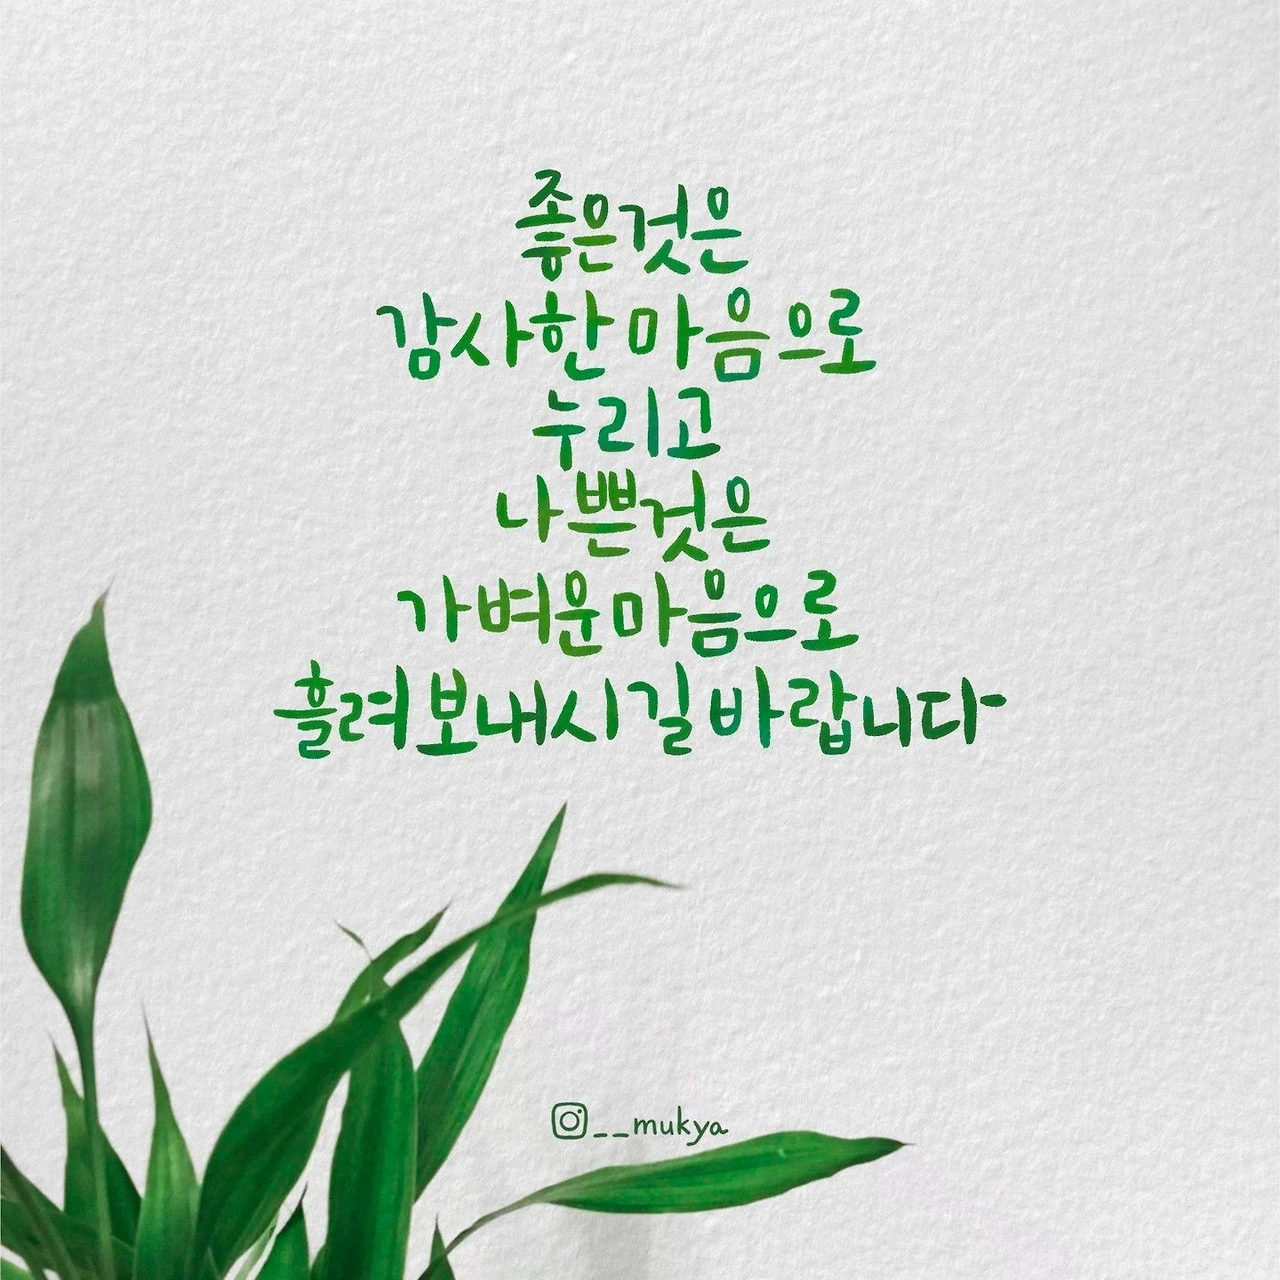 좋은것은
감사한 마음으로
누리고
나쁜것은
가벼운 마음으로
흘려 보내시길 바랍니다
__mukya